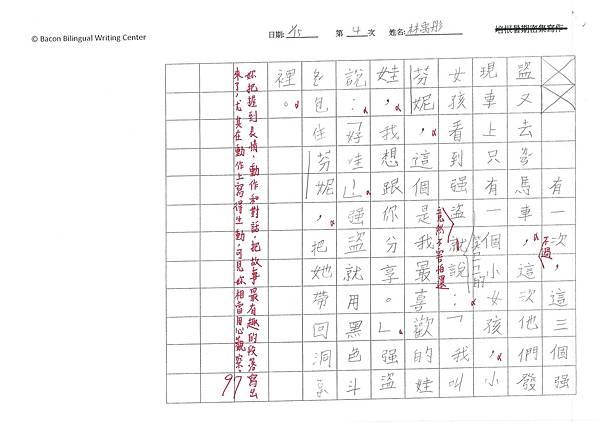 © Bacon Bilingual Writing Center
日期: 7/5 第 4 次 姓名: 林禹彤
培根暑期密集寫作
有一次這三個強
盜又去劣馬車,這次他們發
現車上只有一個小女孩,小
女孩看到強盜就說:「我叫
芬妮,這個是我最喜歡的娃
娃,我想跟你分享。」強盜
說:「好哇!」強盜就用黑色斗
包包住芬妮,把她帶回洞
裡。
不過,
竟然不害怕還
妳把握到表情,動作和對話,把故事最有趣的段落寫出
來了,尤其在動作上寫得生動,可見妳相當用心觀察。
97